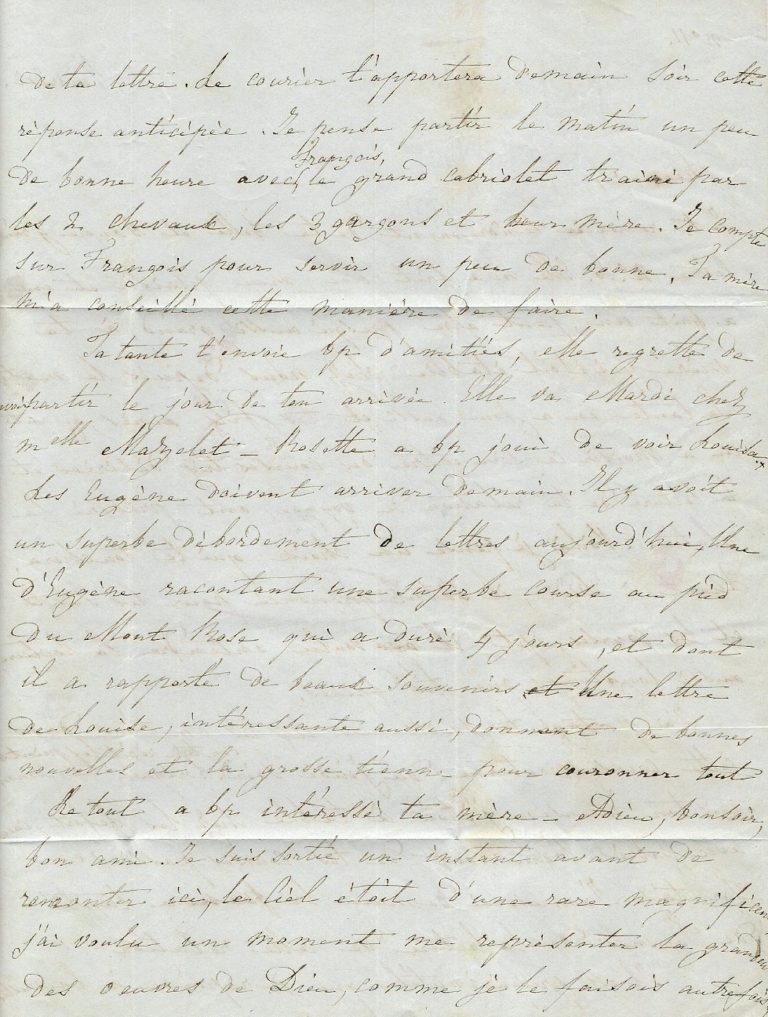 de ta lettre. Le courier t'apportera demain soir cette
réponse anticipée. Je pense partir le matin un peu
François,
de bonne heure avec le grand cabriolet trainé par
les 2 chevaux, les 3 garçons et leur mère. Je compte
sur François pour servir un peu de bonne. Ta mère
m'a conseillé cette manière de faire.
Ta tante t'envoie bp d'amitiés, elle regrette de
partir le jour de ton arrivée Elle va Mardi chez
Melle Mazelet - Rosette a bp joui de voir Louisa.
Les Eugène doivent arriver demain. Il y avoit
un superbe débordement de lettres aujourd'hui, Une
d'Eugène racontant une superbe course au pied
du Mont Rose qui a duré 4 jours, et dont
il a rapporté de beaux souvenirs et Une lettre
de Louise, intéressante aussi, donnent de bonnes
nouvelles et la grosse tienne pour couronner tout
Le tout a bp intéressé ta mère - Adieu, bonsoir,
bon ami. Je suis sortie un instant avant de
remonter ici, le Ciel étoit d'une rare magnificence
j'ai voulu un moment me représenter la grandeur
des oeuvres de Dieu, comme je le faisois autrefois